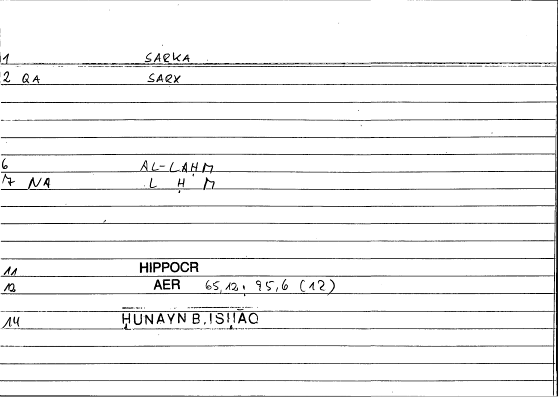 1 SARKA
2 QA SARX
6 AL-LAḤM
7 NA L Ḥ M
11 HIPPOCR
12 AER 65,12. 95,6 (12)
14 ḤUNAYN B. ISḤĀQ